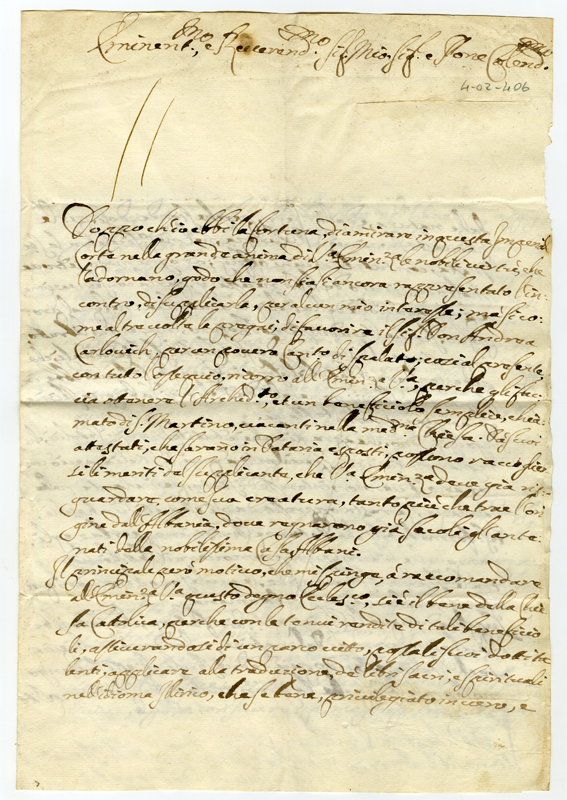 Eminent.mo, e Reverend.mo Sig.r Mio, Sig.r e Pone Colend.mo
4-02-406
Doppo ch'io ebbi la fortuna, di amirare in questa Imperial
Corte nella grande anima di V.ra Eminenza le molte vertù, che
l'adornano, godo che non siasi ancora rappresentato l'in-
contro, di suplicarla, per alcun mio interesse; ma sico-
me altre volte la pregai, di favorire il Sig.r Don Andrea
Carlovich, per un povero Canto di Spalato; così al presente
con tutto l'ossequio, ricorro all'Eminenza V.ra, perche gli fac-
cia ottenere l'Archid.to, et un beneficiolo semplice, chia-
mato di S. Martino, vacanti nella med.ma Chiesa. Da suoi
attestati, che sarano in Dataria esposti, possono raccoglier-
si li meriti del supplicante, che V.ra Eminenza deve già ri-
guardare, come sua creatura, tanto più che trae l'ori-
gine dall'Albania, dove regnarono già secoli gl'ante-
nati della nobilissima Casa Albani.
Il principale però motivo, che mi spinge, à raccomandare
all'Eminenza V.ra questo degno Eccles.co, si è il bene della Chie-
sa Catolica, perche con le tenui rendite di tali beneficio-
li, assicurandosi di un parco vitto, possa li suoi dotti ta-
lenti, applicare alla traduzione, de libri sacri, e spirituali
nell'Idioma Ilirico, che se bene, privilegiato in vero, e